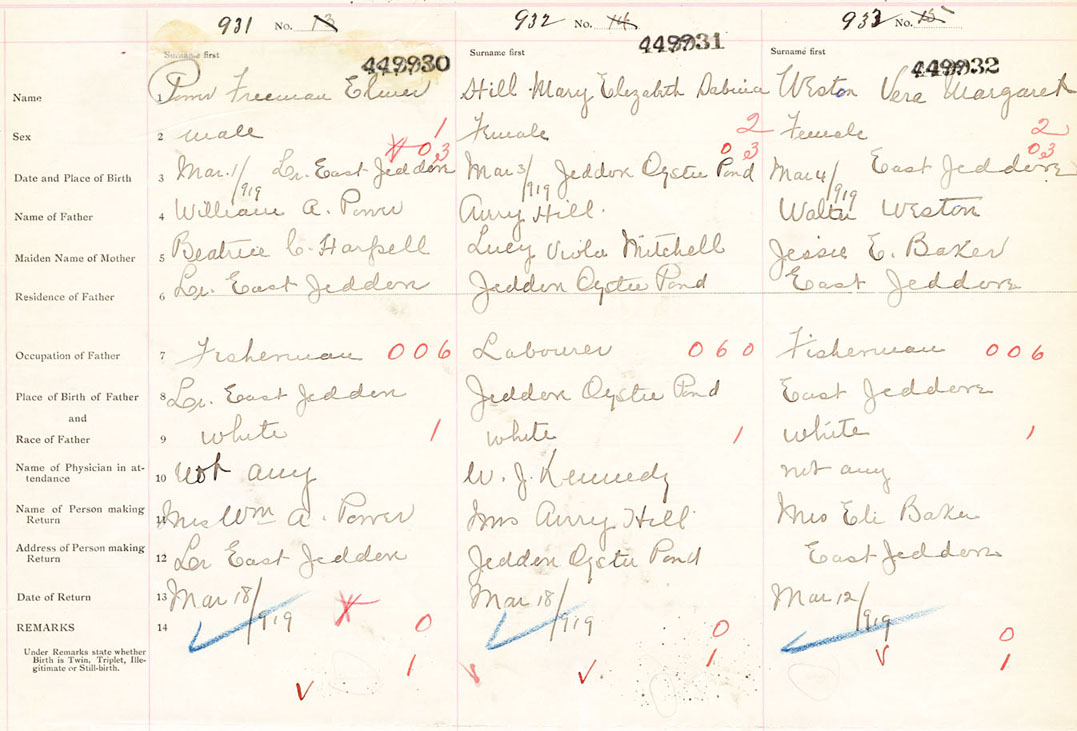 931 No. 13 932 No. 14 933 No. 15
Surname first Surname first Surname first
449930 449931 449932
Name Power Freeman Elmer Hill Mary Elizabeth Weston Vera Margaret
Sex 2 male 1 Female 2 Female 2
03 03 03
Date and Place of Birth 3 Mar. 1/919 Lr. East Jeddore Mar 3/919 Jeddore Oyster Pond Mar 4/919 East Jeddore
Name of Father 4 William A. Power Avry Hill. Walter Weston
Maiden Name of Mother 5 Beatrice C. Harpell Lucy Viola Mitchell Jessie E. Baker
Residence of Father 6 Lr. East Jeddore Jeddore Oyster Pond East Jeddore
Occupation of Father 7 Fisherman 006 Labourer 060 Fisherman 006
Place of Birth of Father 8 Lr. East Jeddore Jeddore Oyster Pond East Jeddore
and
Race of Father 9 white 1 white 1 white 1
Name of Physician in at-
tendance 10 not any W. J. Kennedy not any
Name of Person making
Return 11 Mrs Wm A. Power Mrs Avry Hill Mrs Eli Baker
Address of Person making
Return 12 Lr East Jeddore Jeddore Oyster Pond East Jeddore
Date of Return 13 Mar 18/919 Mar 18/919 Mar 12/919
REMARKS 14 0 0 0
Under Remarks state whether
Birth is Twin, Triplet, Ille-
gitimate or Still-birth. 1 1 1